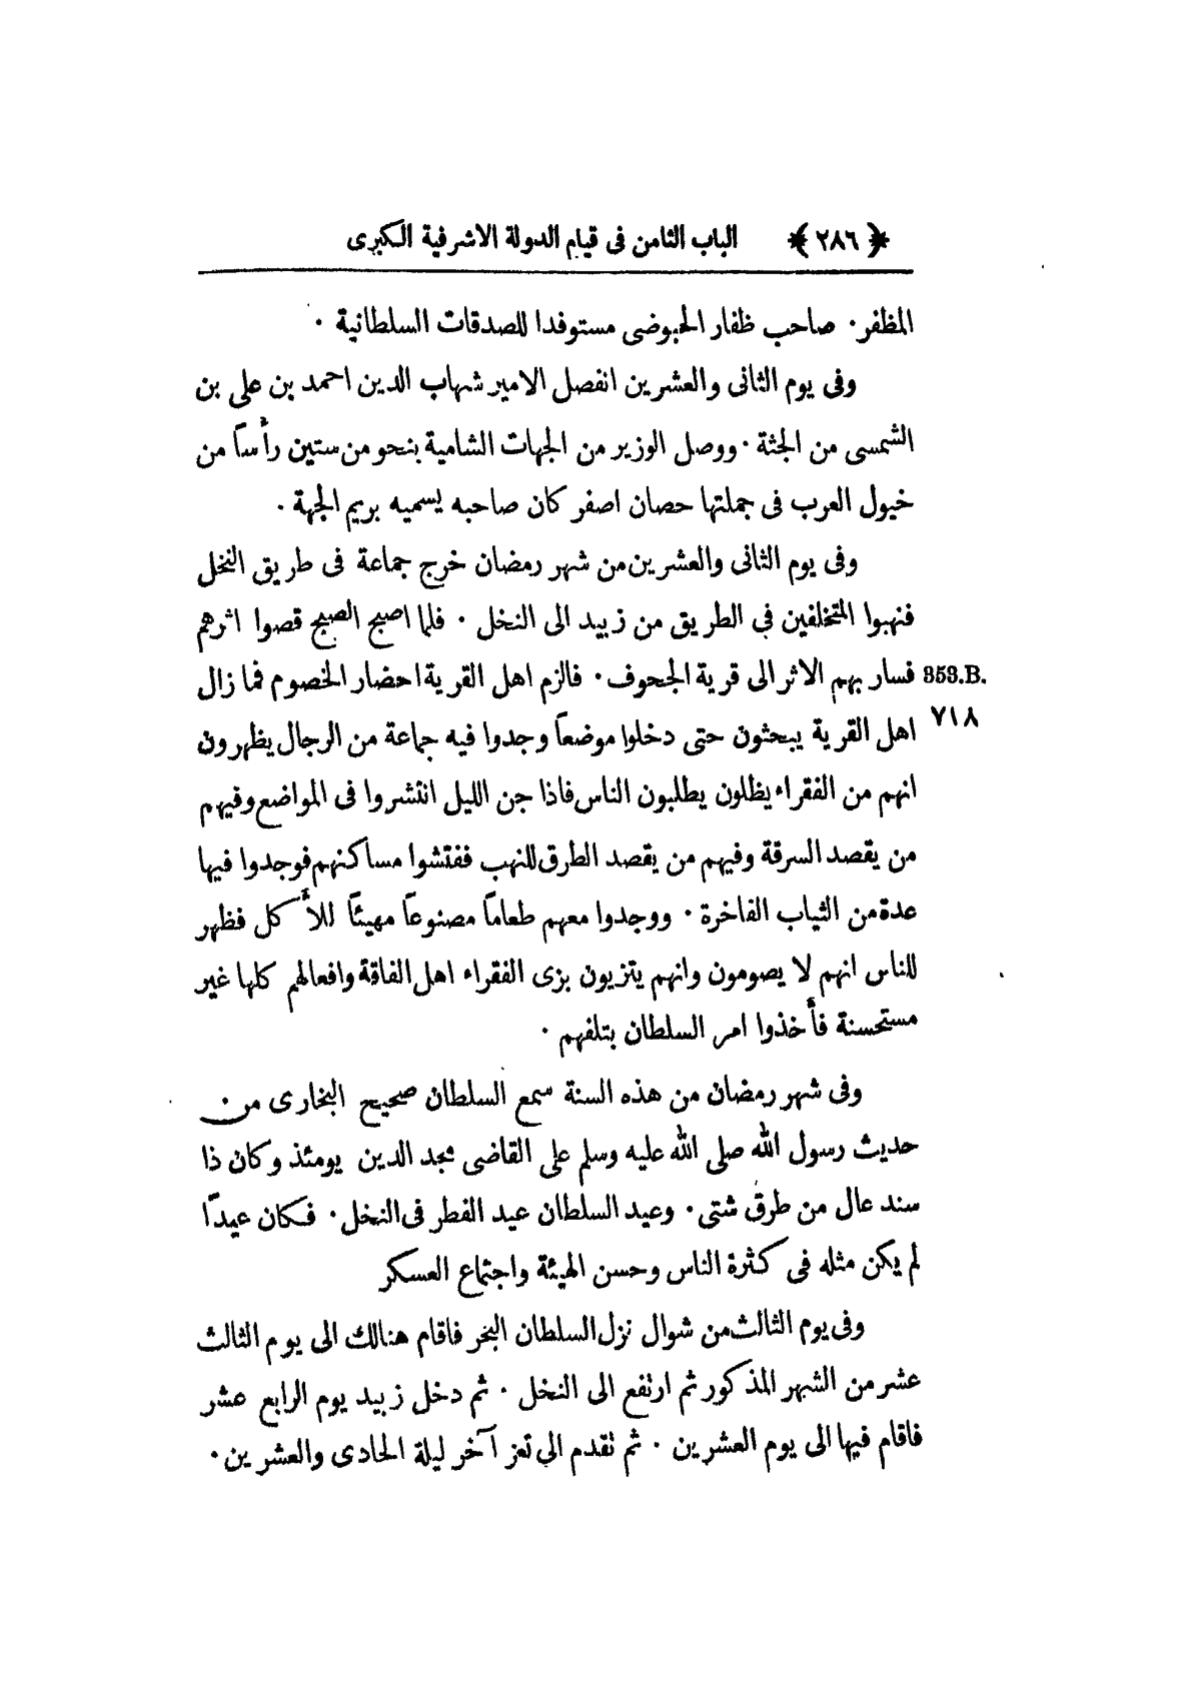 ﴿ ٢٨٦ ﴾ الباب الثامن فى قيام الدولة الاشرفية الكبرى
المظفر · صاحب ظفار الحبوضى مستوفدا للصدقات السلطانية ·
وفى يوم الثانى والعشرين انفصل الامير شهاب الدين احمد بن على بن
الشمسى من الجثة · ووصل الوزير من الجهات الشامية بنحو من ستين رأساً من
خيول العرب فى جملتها حصان اصفر كان صاحبه يسميه بريم الجهة ·
وفى يوم الثانى والعشرين من شهر رمضان خرج جماعة فى طريق النخل
فنهبوا المتخلفين في الطريق من زبيد الى النخل · فلما اصبح الصبح قصوا اثرهم
فسار بهم الاثر الى قرية الجحوف · فالزم اهل القرية احضار الخصوم فما زال 353.B.
اهل القرية يبحثون حتى دخلوا موضعاً وجدوا فيه جماعة من الرجال يظهرون ٧١٨
انهم من الفقراء يظلون يطلبون الناس فاذا جن الليل انتشروا فى المواضع وفيهم
من يقصد السرقة وفيهم من يقصد الطرق للنهب ففتشوا مساكنهم فوجدوا فيها
عدة من الثياب الفاخرة · ووجدوا معهم طعاماً مصنوعاً مهيئاً للأكل فظهر
للناس انهم لا يصومون وانهم يتزيون بزى الفقراء اهل الفاقة وافعالهم كلها غير
مستحسنة فأخذوا امر السلطان بتلفهم ·
وفى شهر رمضان من هذه السنة سمع السلطان صحيح البخارى من
حديث رسول الله صلى الله عليه وسلم على القاضى مجد الدين يومئذ وكان ذا
سند عال من طرق شتى · وعيد السلطان عيد الفطر فى النخل · فكان عيداً
لم يكن مثله فى كثرة الناس وحسن الهيئة واجتماع العسكر
وفى يوم الثالث من شوال نزل السلطان البحر فاقام هنالك الى يوم الثالث
عشر من الشهر المذكور ثم ارتفع الى النخل · ثم دخل زبيد يوم الرابع عشر
فاقام فيها الى يوم العشرين · ثم تقدم الي تعز آخر ليلة الحادى والعشرين ·